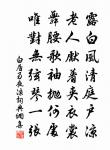 露白風清庭戶涼
老人著夾衣裳
舞腰歌袖拋何處
唯對無弦琴一張
白居易夜涼詞典網書